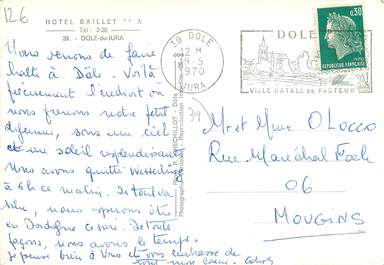 126
HOTEL BAILLET
Tél : 3-36
39. - DOLE-du-JURA
Nous venons de faire
halte à Dôle. Voilà
précisément l'endroit où
nous prenons notre petit
déjeuner, sous un ciel
et un soleil resplendissants
Nous avons quitté Wesserling
à 6h ce matin. Si tout va
bien, nous espérons être
en Dordogne ce soir. De toute
façons, nous avons le temps.
Je pense bien à Vous et vous embrasse de
tout mon cœur.
39 DOLE
12 H
9-5
1970
JURA
DOLE
VILLE NATALE DE PASTEUR
0,30
REPUBLIQUE FRANÇAISE
39
Mr et Mme O Locco
Rue Maréchal Foch
06
MOUGINS